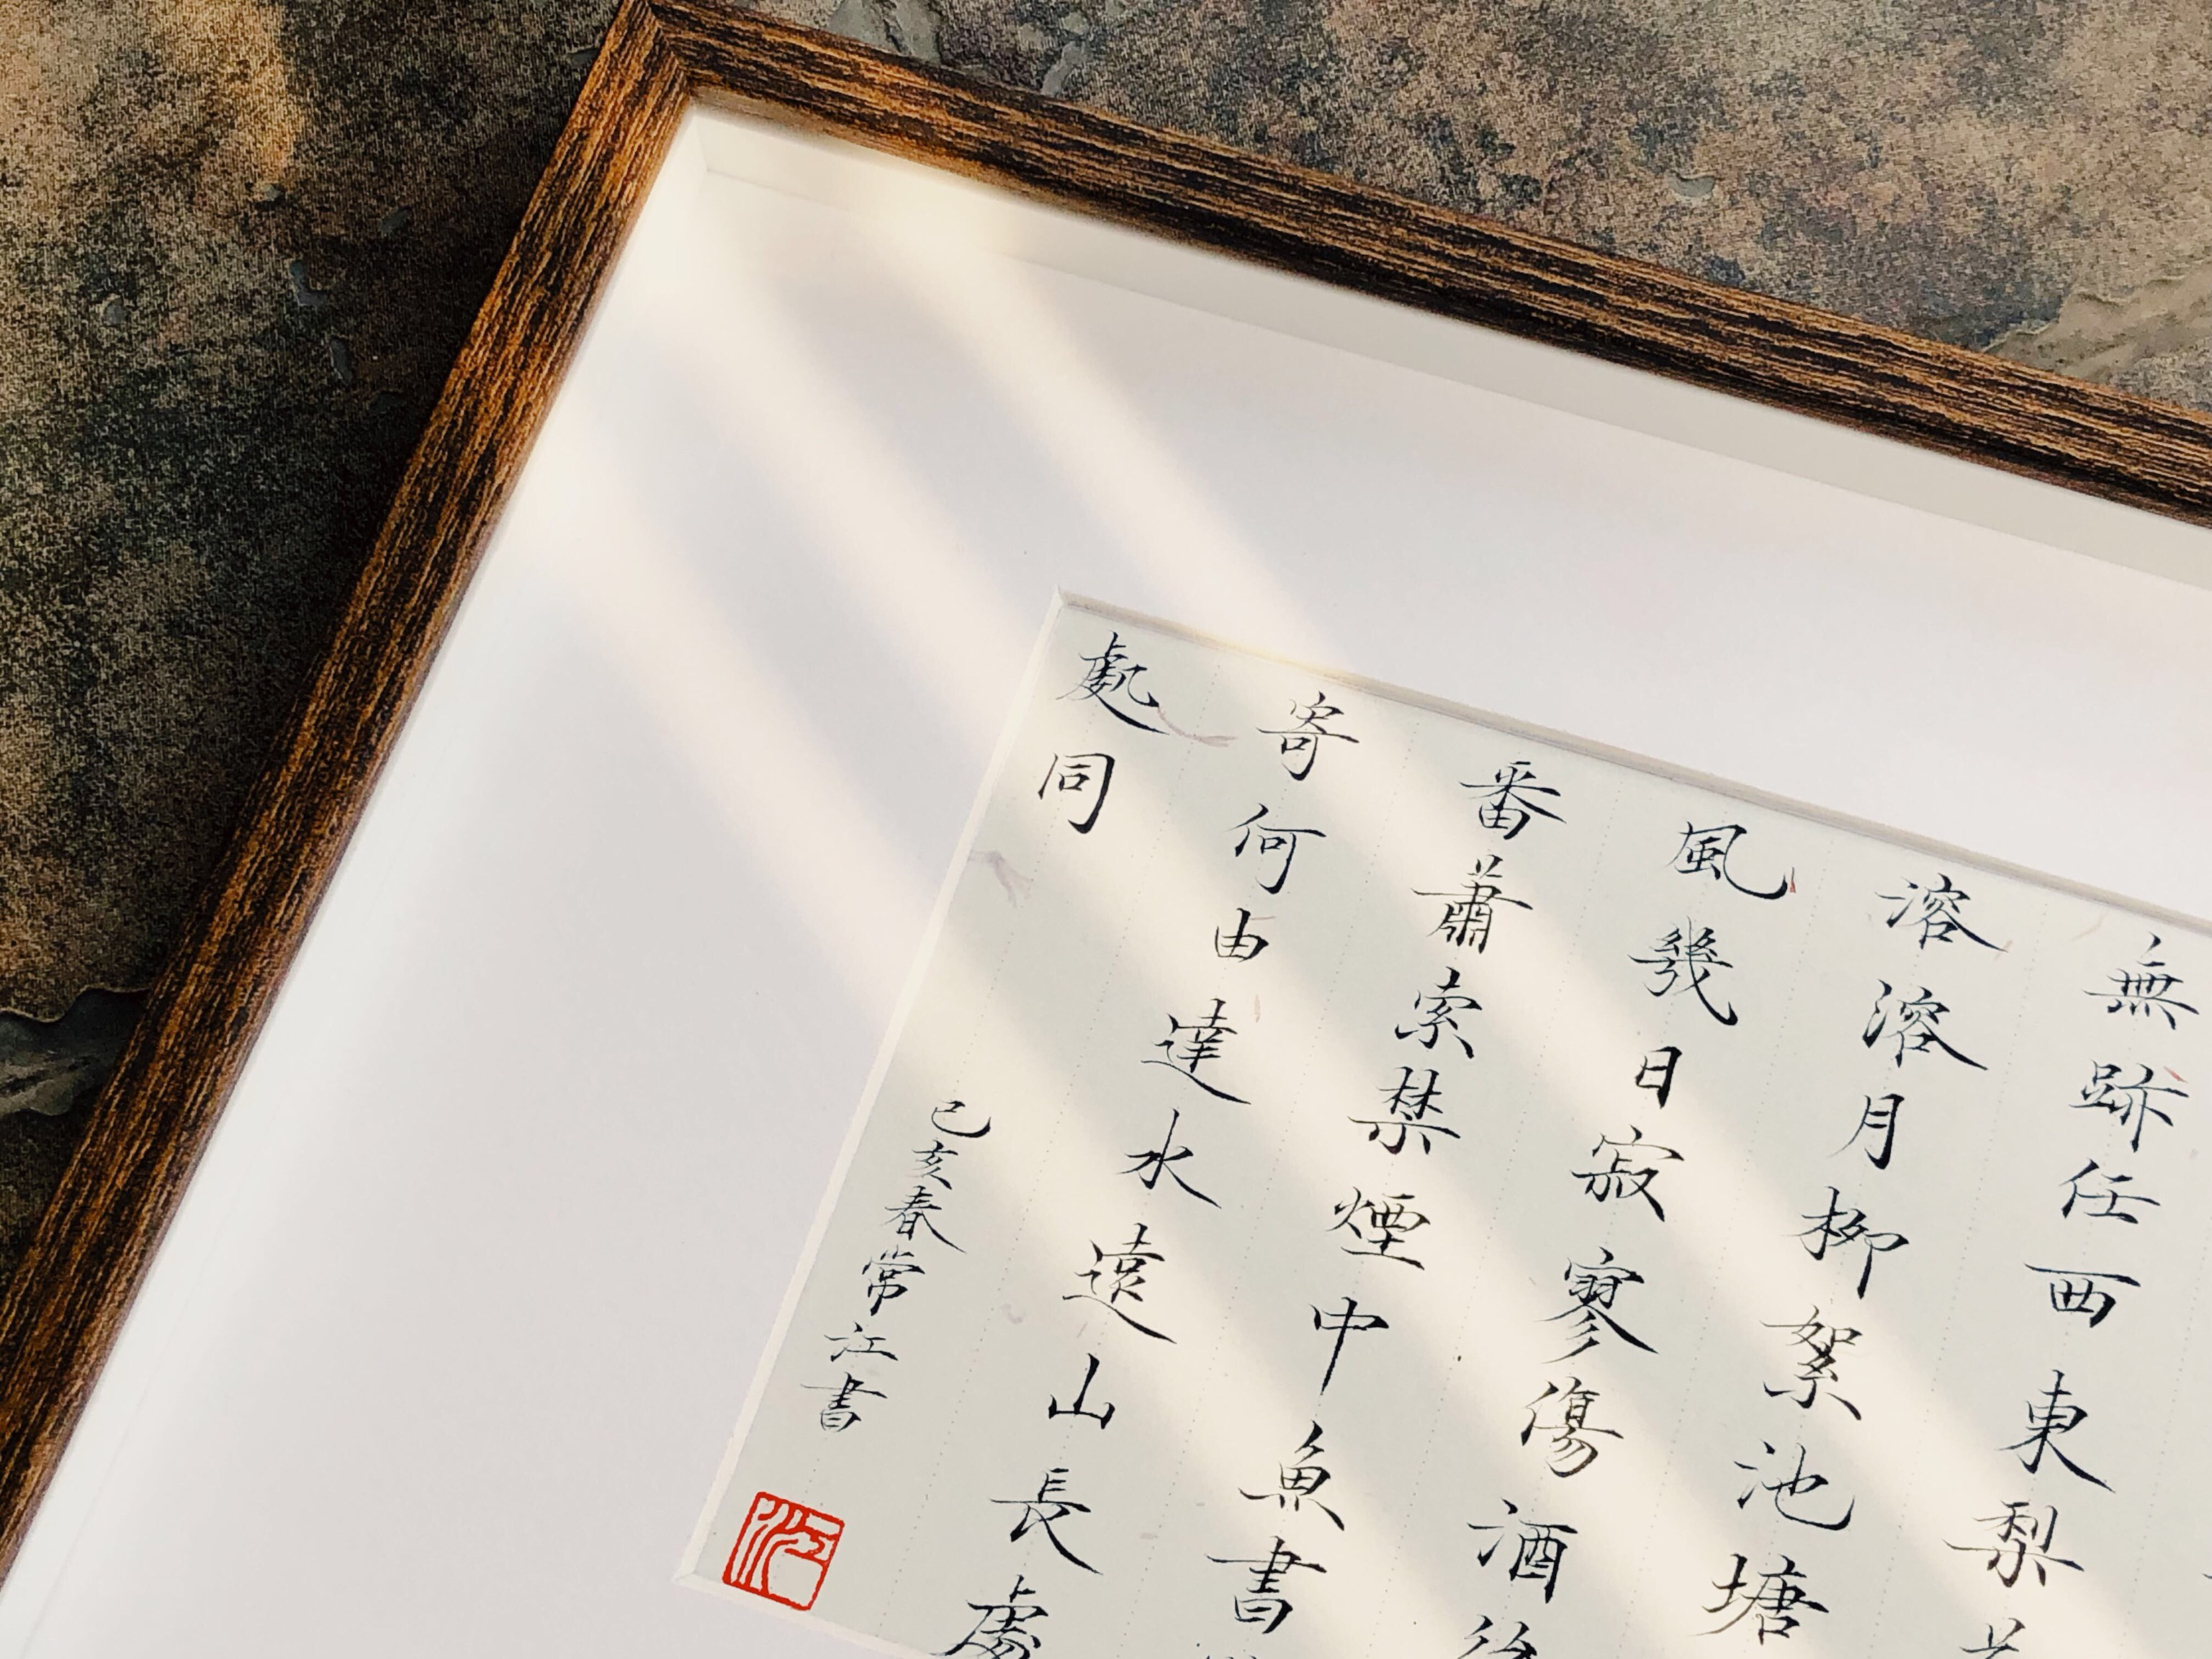 無跡任西東梨
溶溶月柳絮池塘
風幾日寂寥傷酒後
番蕭索禁煙中魚書
寄何由達水遠山長處
處同
己亥春常江書
江